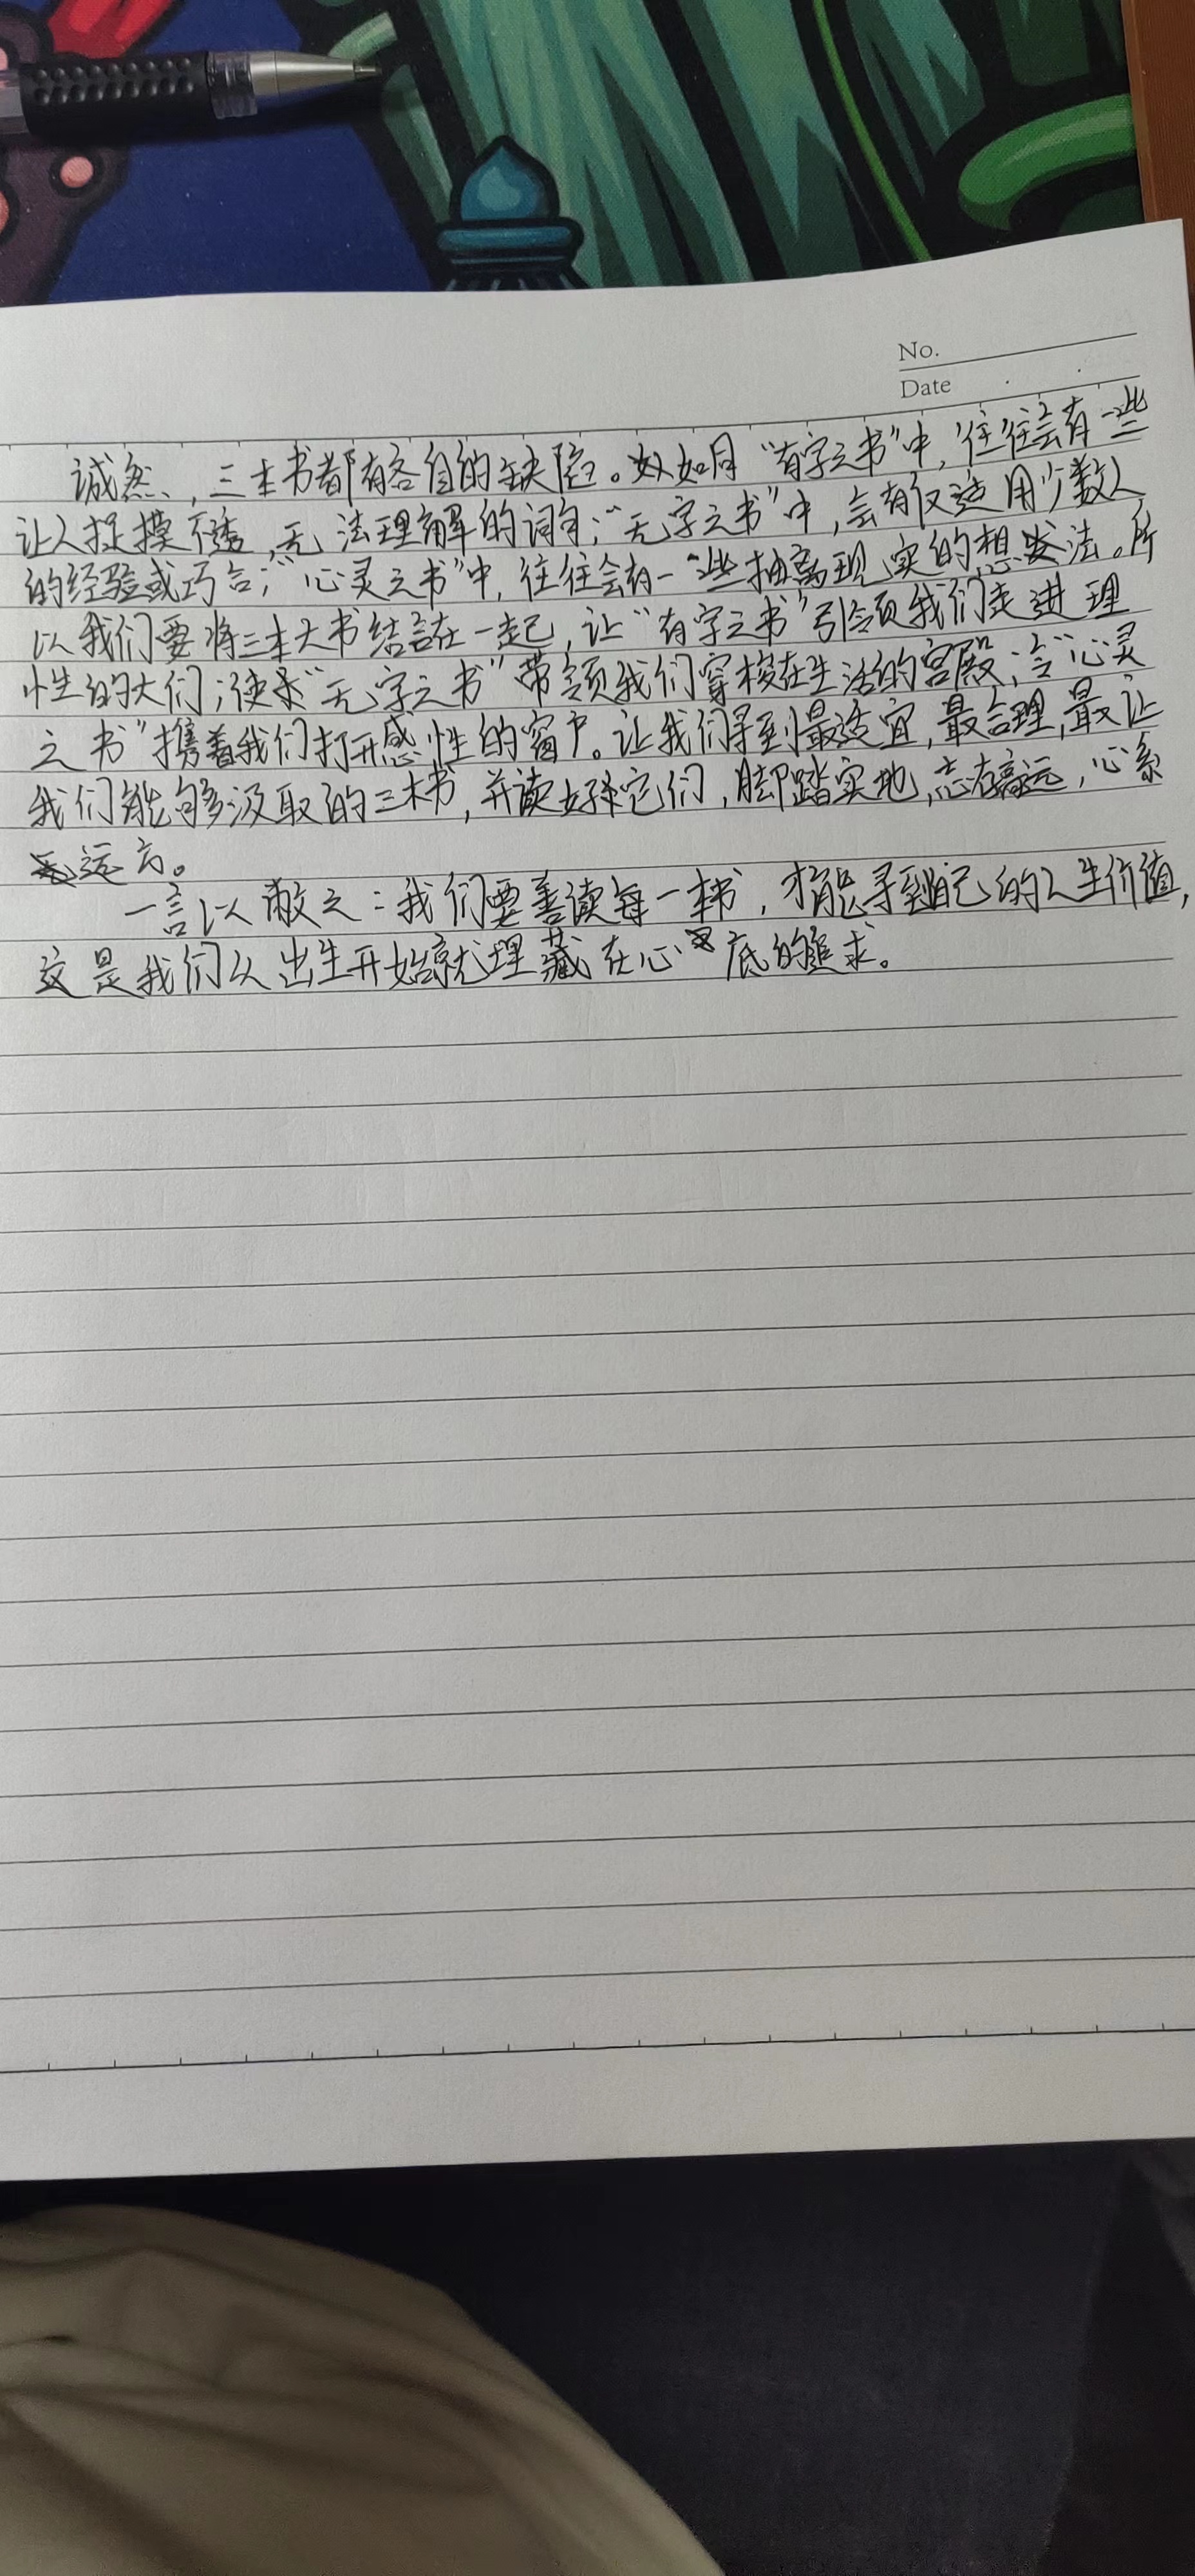 No.
Date
诚然,三本书都有各自的缺陷。如"有字之书"中,往往会有一些
让人捉摸不透,无法理解的词句;"无字之书"中,会有仅适用少数人
的经验或巧合;"心灵之书"中,往往会有一些抽离现实的想法。所
以我们要将三本大书结合在一起,让"有字之书"引领我们走进理
性的大们;使"无字之书"带领我们穿梭在生活的宫殿;令"心灵
之书"携着我们打开感性的窗户。让我们寻到最适宜,最合理,最让
我们能够汲取的三本书,并读好它们,脚踏实地,志存高远,心系
远方。
一言以蔽之:我们要善读每一本书,才能寻到自己的人生价值,
这是我们从出生开始就埋藏在心底的追求。